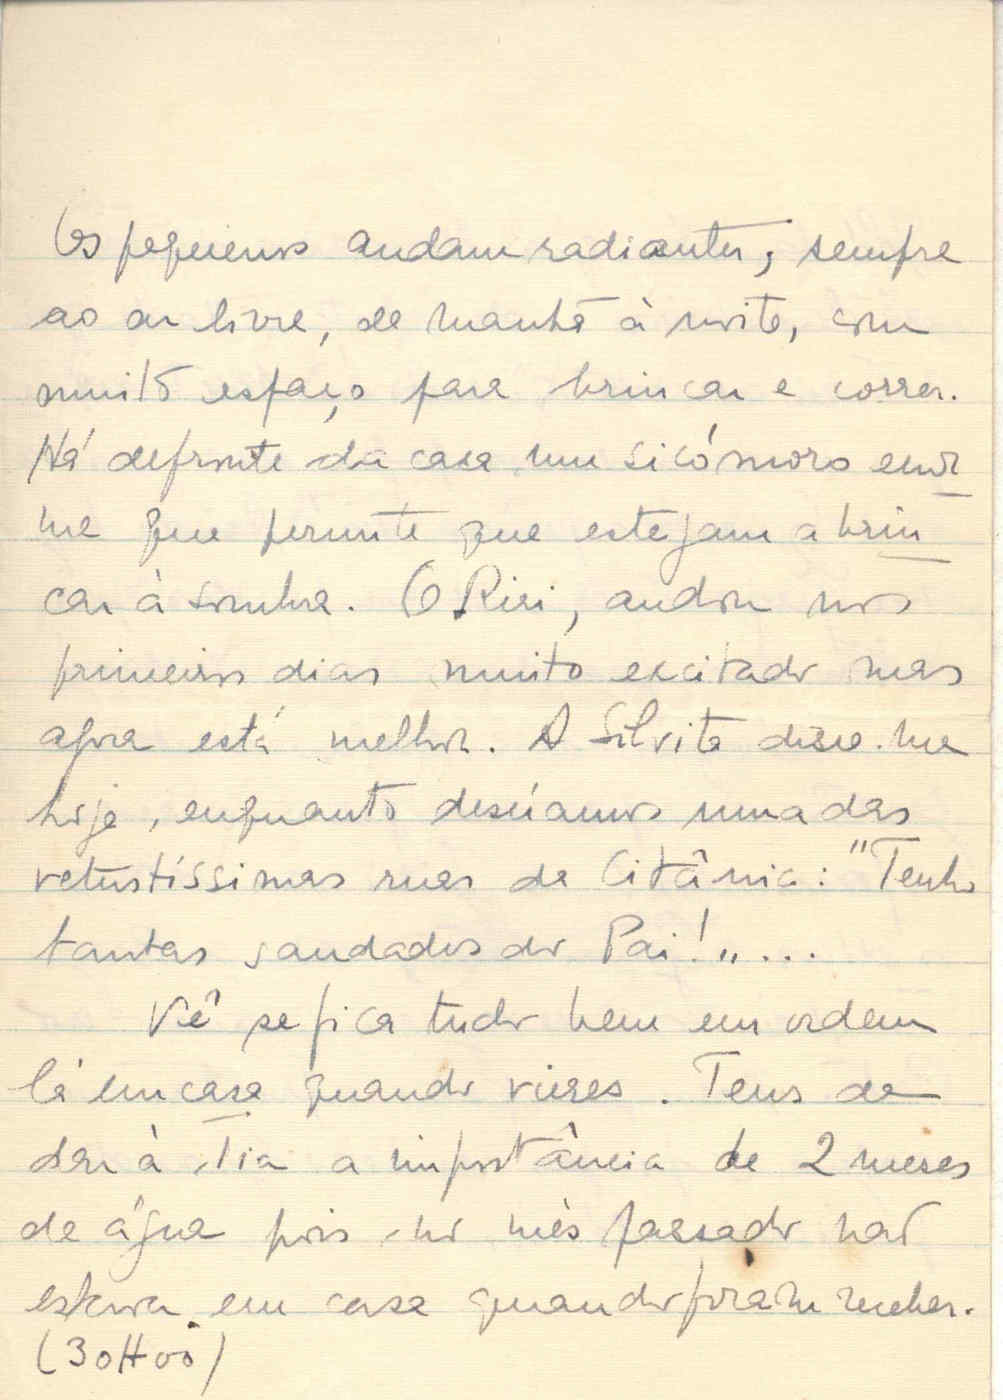 Os pequenos andam radiantes, sempre
ao ar livre, de manhã à noite, com
muito espaço para brincar e correr.
Há defronte da casa um sicómoro enor
me que permite que estejam a brin
car à sombra. O Riri, andou nos
primeiros dias muito excitado mas
agora está melhor. A Silvita disse-me
hoje, enquanto descíamos uma das
vetustíssimas ruas da Citânia: "Tenho
tantas saudades do Pai!"...
Vê se fica tudo bem em ordem
lá em casa quando vieres. Tens de
dar à Tia a importância de 2 meses
de água pois no mês passado não
estava em casa quando foram receber.
(30$00)